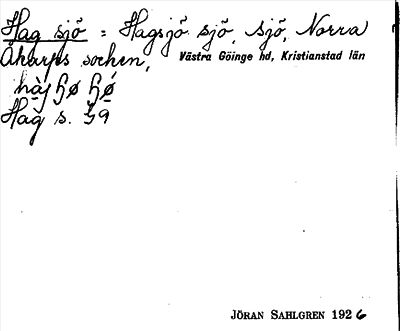 Hag sjö = Hagsjö sjö, sjö, Norra
Åkarps socken, Västra Göinge hd, Kristianstad län
Hag s. 59
JÖRAN SAHLGREN 1926